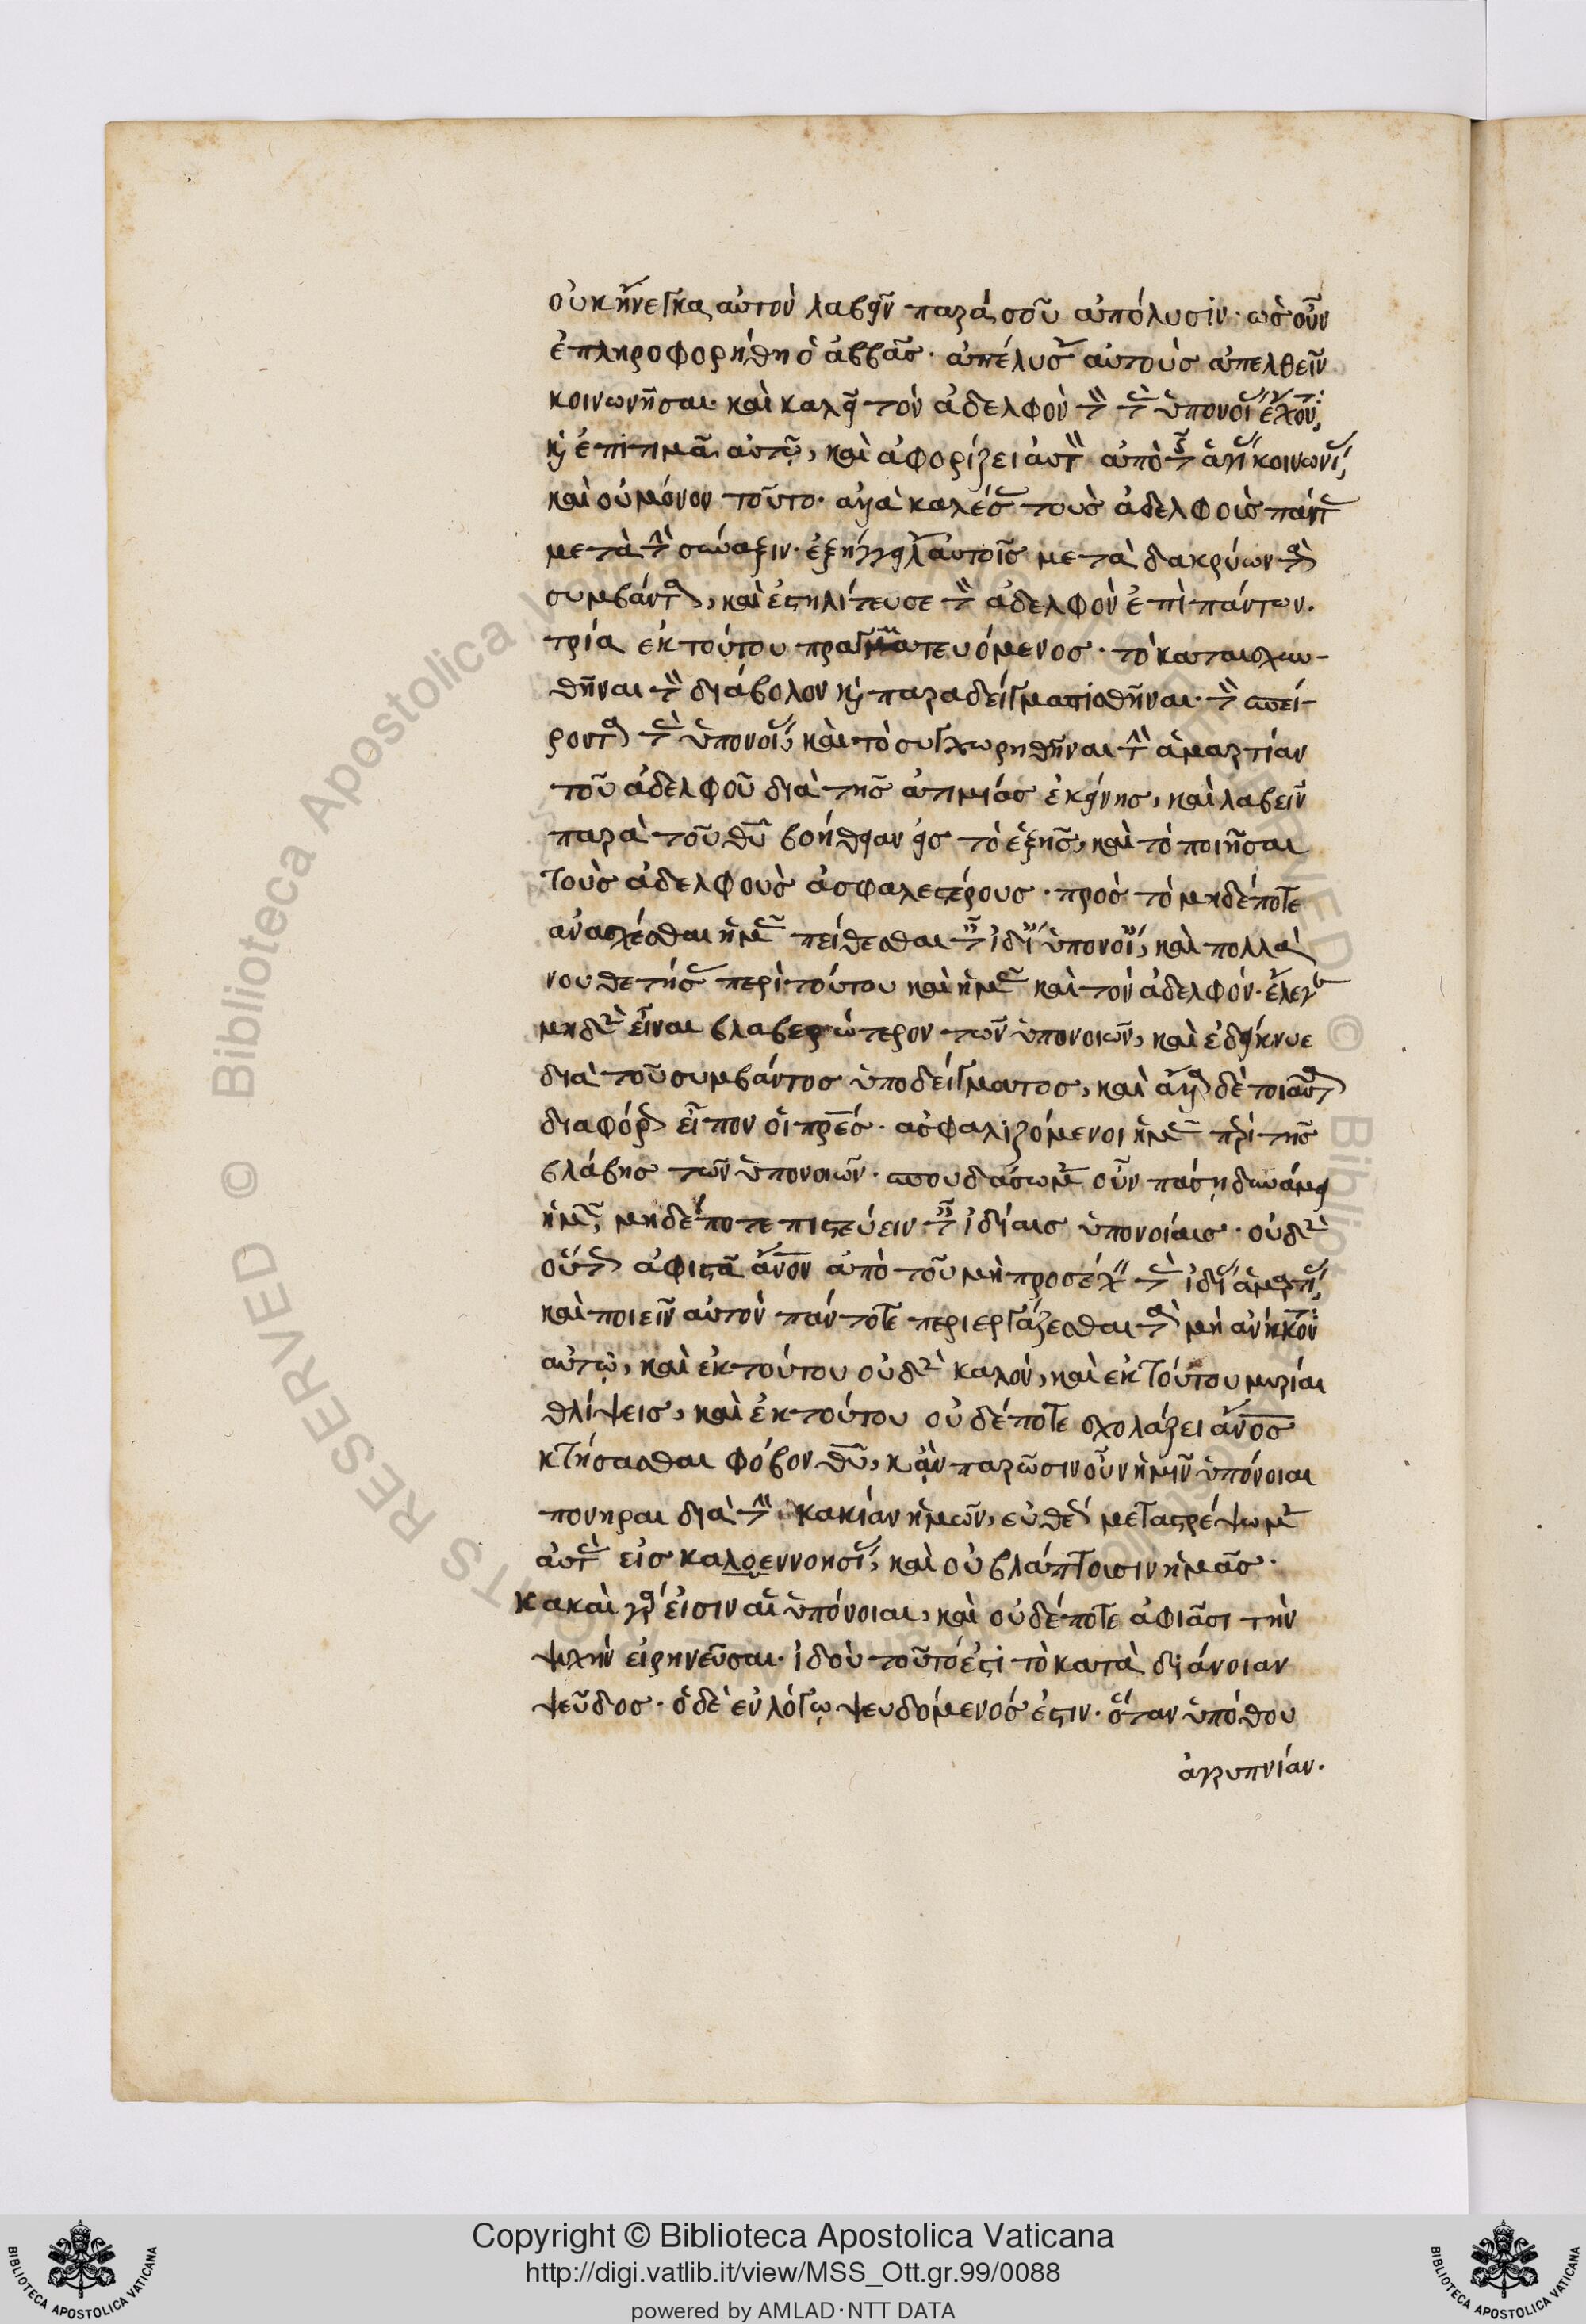 οὐκ ἤνεγκα αὐτὸν λαβεῖν παρά σου ἀπόλυσιν· ὡς οὖν
ἐπληροφορήθη ὁ ἀββᾶς· ἀπέλυσε αὐτοὺς ἀπελθεῖν
κοινωνῆσαι· καὶ καλεῖ τὸν ἀδελφὸν τὸν τὰς ὑπονοίας ἔχοντα,
καὶ ἐπιτιμᾶ αὐτῷ, καὶ ἀφορίζει αὐτὸν ἀπὸ τῆς ἁγίας κοινωνίας,
καὶ οὐ μόνον τοῦτο· ἀλλὰ καλέσας τοὺς ἀδελφοὺς πάντας
μετὰ τὴν σύναξιν· ἐξήγγειλεν αὐτοῖς μετὰ δακρύων τὰ
συμβάντα, καὶ ἐστηλίτευσε τὸν ἀδελφὸν ἐπὶ πάντων.
τρία ἐκ τούτου πραγματευόμενος· τὸ καταισχυν-
θῆναι τὸν διάβολον καὶ παραδειγματισθῆναι· τὸν σπεί-
ροντα τὰς ὑπονοίας, καὶ τὸ συγχωρηθῆναι τὴν ἁμαρτίαν
τοῦ ἀδελφοῦ διὰ τῆς ἀτιμίας ἐκείνης, καὶ λαβεῖν
παρὰ τοῦ θυ βοήθειαν εἰς τὸ ἑξῆς, καὶ τὸ ποιῆσαι
τοὺς ἀδελφοὺς ἀσφαλεστέρους· πρὸς τὸ μηδέποτε
ἀνασχέσθαι ἡμᾶς πείθεσθαι ταῖς ἰδίαις ὑπονοίαις, καὶ πολλὰ
νουθετήσας περὶ τούτου καὶ ἡμᾶς καὶ τὸν ἀδελφόν· ἔλεγε
μηδὲν εἶναι βλαβερώτερον τῶν ὑπονοιῶν, καὶ ἐδείκνυε
διὰ τοῦ συμβάντος ὑποδείγματος, καὶ ἄλλα δὲ τοιαῦτα
διαφόρως εἶπον οἱ πρες· ἀσφαλιζόμενοι ἡμᾶς περὶ τῆς
βλάβης τῶν ὑπονοιῶν· σπουδάσωμεν οὖν πάσῃ δυνάμει
ἡμεῖς, μηδέποτε πιστεύειν ταῖς ἰδίαις ὑπονοίαις· οὐδὲν
οὕτως ἀφιστᾶ ανον ἀπὸ τοῦ μὴ προσέχειν τὰς ἰδίας ἁμαρτίας,
καὶ ποιεῖν αὐτὸν πάντοτε περιεργάζεσθαι τὰ μὴ ἀνήκοντα
αὐτῷ, καὶ ἐκ τούτου οὐδὲν καλόν, καὶ ἐκ τούτου μυρίαι
θλίψεις, καὶ ἐκ τούτου οὐδέποτε σχολάζει ανος
κτήσασθαι φόβον θυ, κἂν παρῶσιν οὖν ἡμῖν ὑπόνοιαι
πονηραι διὰ τὴν κακίαν ἡμῶν, εὐθέως μεταστρέψωμεν
αὐτὰς εἰς καλοεννοησίας, καὶ οὐ βλάπτουσιν ἡμᾶς·
Κακαὶ γάρ εἰσιν αἱ ὑπόνοιαι, καὶ οὐδέποτε ἀφιᾶσι τὴν
ψυχὴν εἰρηνεῦσαι· ἰδοὺ τοῦτό ἐστι τὸ κατὰ διάνοιαν
ψεῦδος· ὁ δὲ ἐν λόγῳ ψευδόμενός ἐστιν· ὅταν ὑπόθου
ἀγρυπνίαν.
Copyright © Biblioteca Apostolica Vaticana
http://digi.vatlib.it/view/MSS_Ott.gr.99/0088
powered by AMLAD·NTT DATA